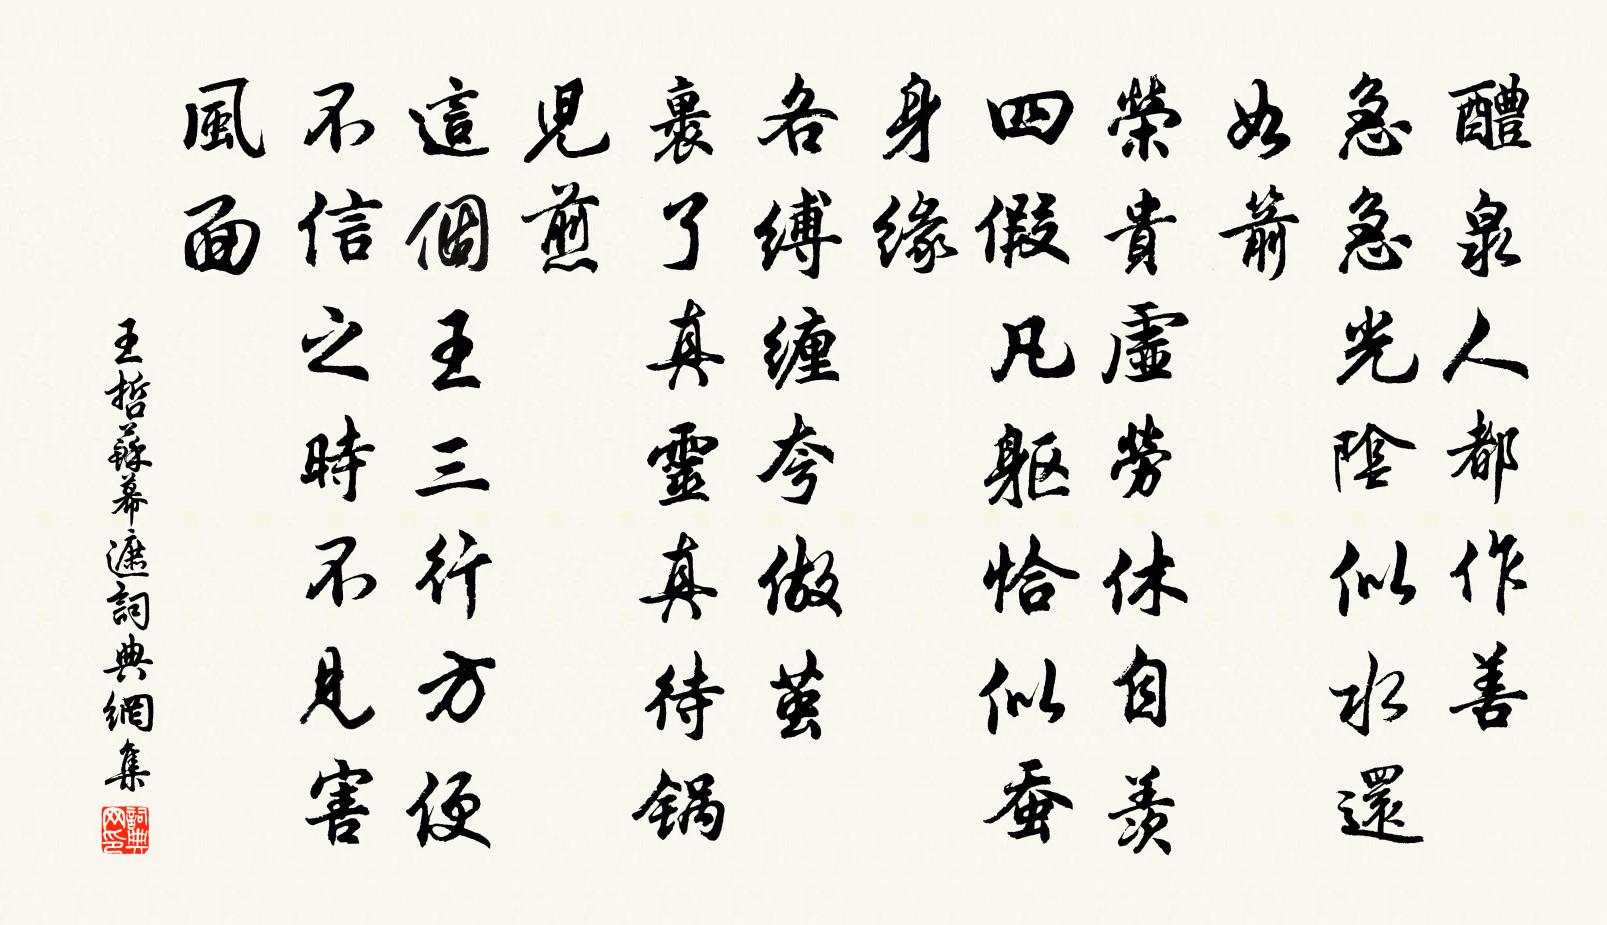 醴泉人都作善
急急光陰似水還
如箭
榮貴虛勞休自羨
四假凡軀恰似蚕
身緣
各縛缠夸做茧
裹了真靈真待锅
児煎
這個王三行方便
不信之時不見害
風面
王哲蘇幕遮詞典網集
詞典网印